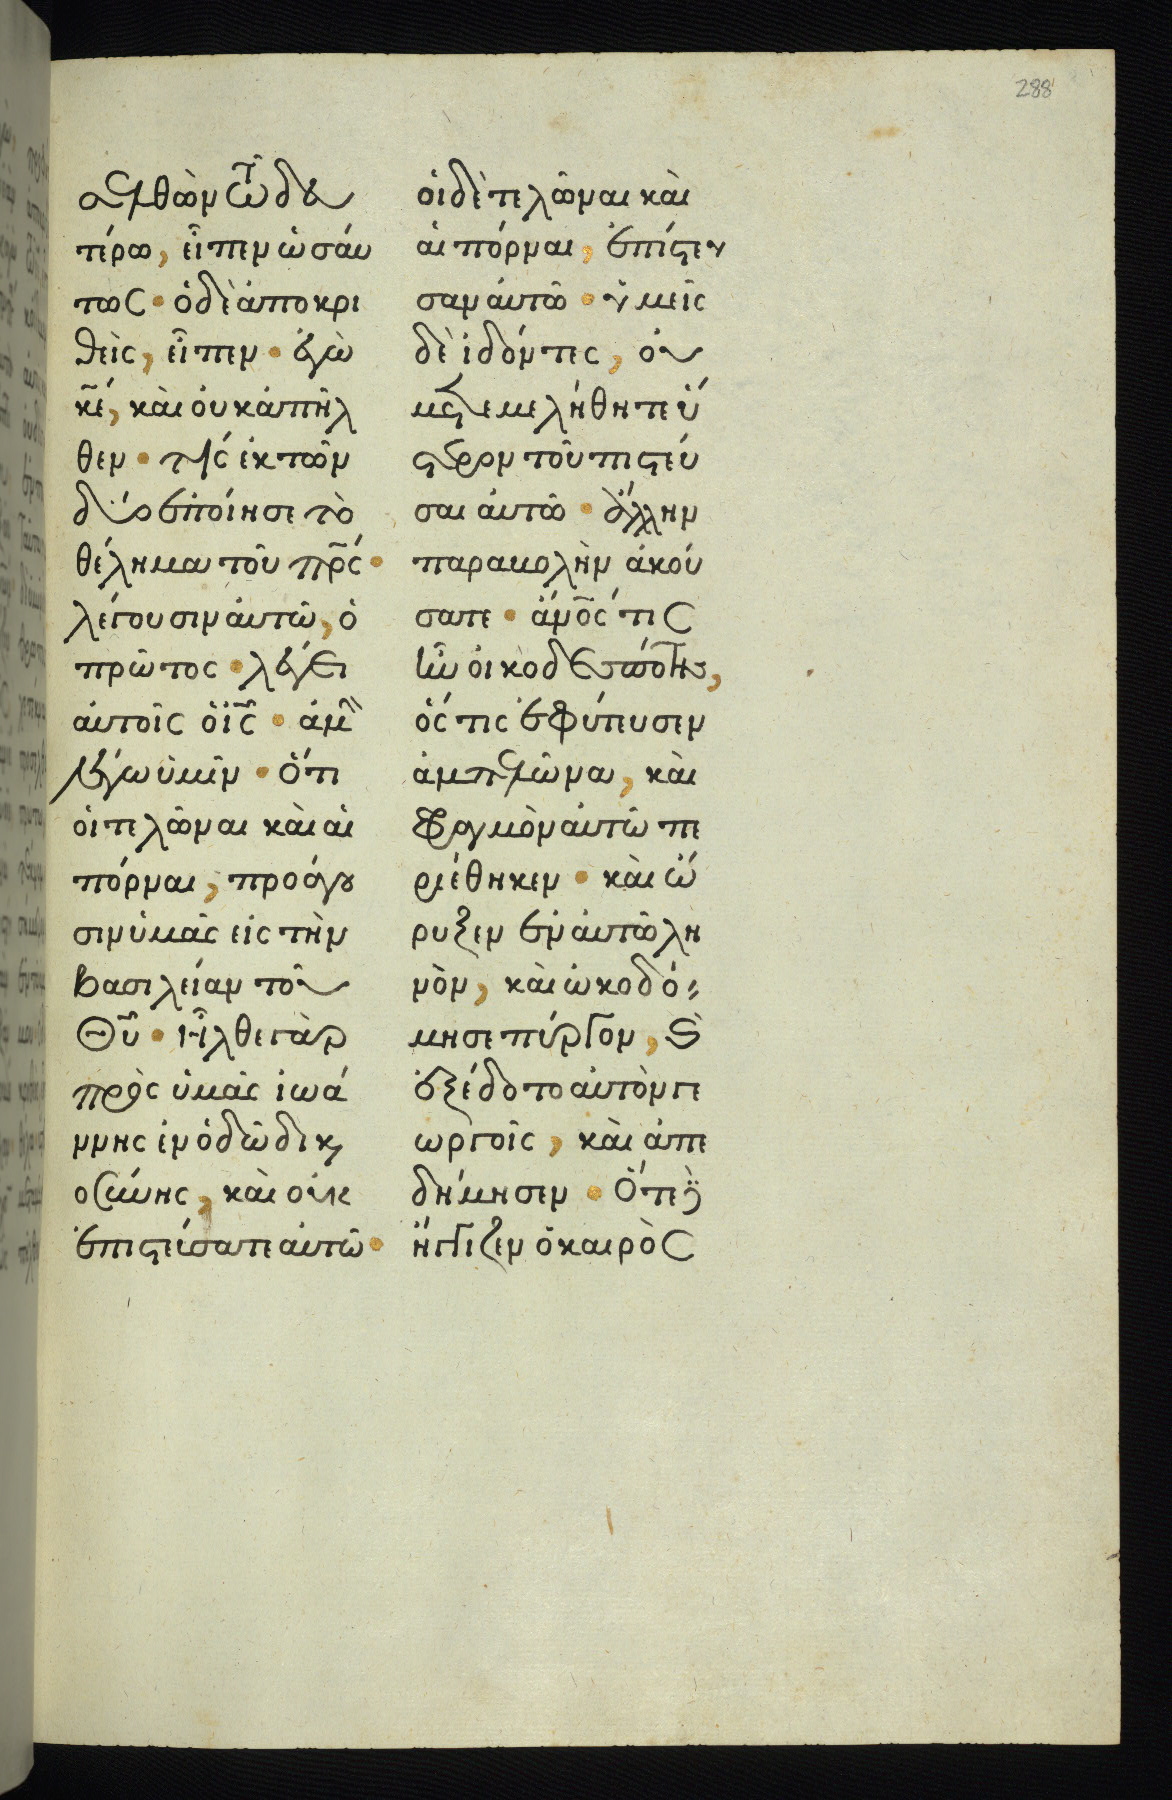 288
ελθὼν τῶ δευ
τέρω, εἶπεν ὡσάυ
τως · ὁ δὲ ἀποκρι
θεὶς, εἶπεν · ἐγὼ
κε̄, καὶ ὀυκ ἀπῆλ
θεν · τίς ἐκ τῶν
δύο ἐποίησε τὸ
θέλημα τοῦ πρ̄ς ·
λέγουσιν ἀυτῶ, ὁ
πρῶτος · λέγει
ἀυτοῖς ὁ ις̄ · ἀμὴ
λέγω ὑμῖν · ὅτι
ὁι τελῶναι καὶ ἁι
πόρναι, προάγου
σιν ὑμᾶς εἰς τὴν
βασιλείαν τοῦ
θῡ · ἦλθε γὰρ
πρὸς ὑμᾶς ἰωά
ννης ἐν ὁδῶ δικαι
οσύνης, καὶ οὐκ
ἐπιστεύσατε ἀυτῶ ·
ὁι δὲ τελῶναι καὶ
ἁι πόρναι, ἐπίστευ
σαν ἀυτῶ · ὑμεῖς
δὲ ἰδόντες, ὀυ
μετεμελήθητε ὕ
στερον τοῦ πιστεύ
σαι ἀυτῶ · ἄλλην
παραβολὴν ἀκού
σατε · ἄνο̄ς τις
ἦν ὀικοδεσπότης,
ὅς τις ἐφύτευσεν
ἀμπελῶνα, καὶ
φραγμὸν ἀυτῶ πε
ριέθηκεν · καὶ ὤ
ρυξεν ἐν ἀυτῶ λη
νὸν, καὶ ὠκοδό
μησε πύργον, κ(αὶ)
ἐξέδοτο ἀυτὸν γε
ωργοῖς, καὶ ἀπε
δήμησεν · ὅτε δὲ
ἤγγιζεν ὁ καιρὸς